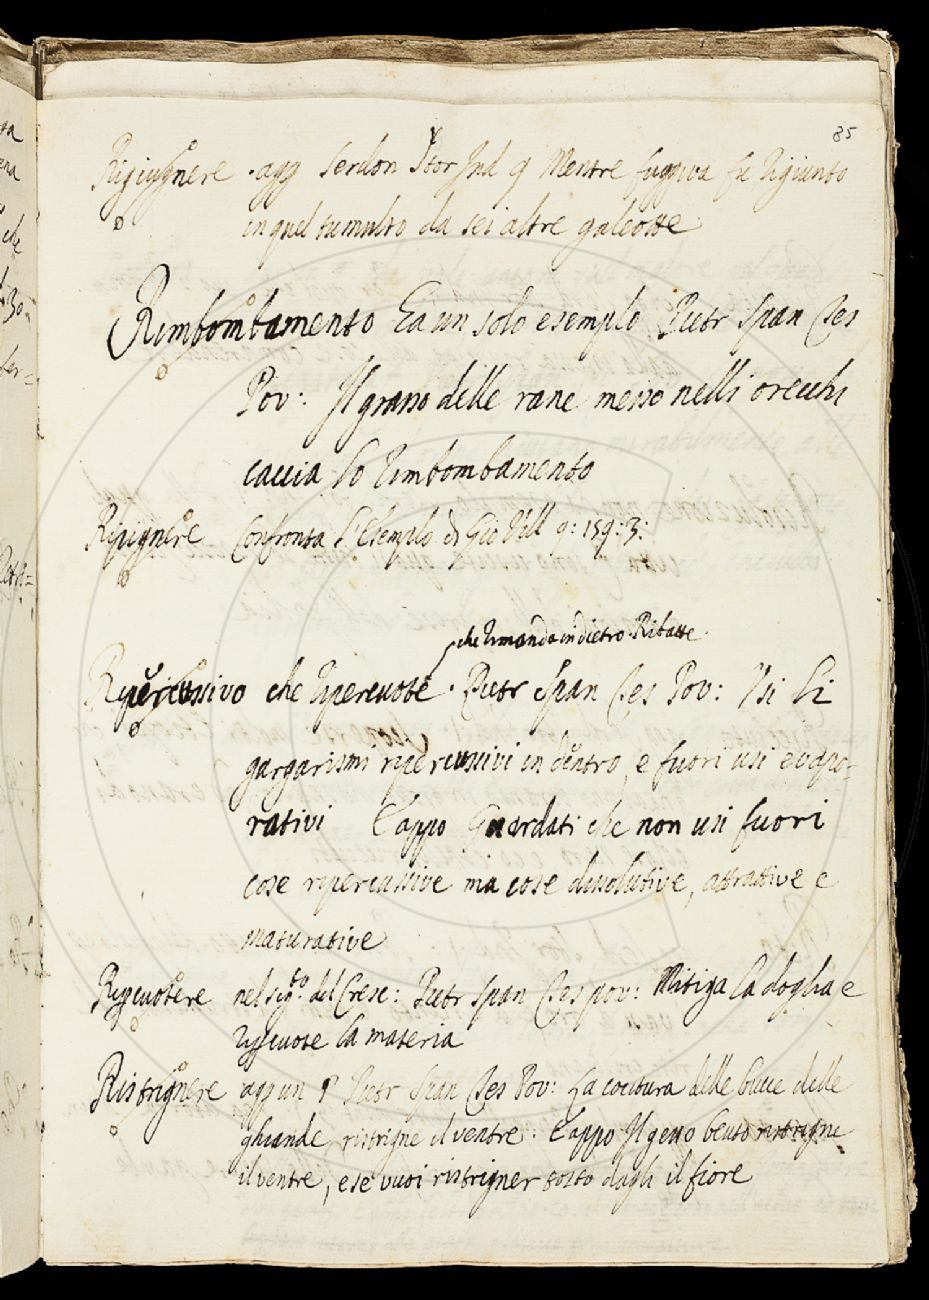 85
Rigiugnere . agg Serdon Stor Ind 9 Mentre fuggiva fu rigiunto
in quel tumulto da sei altre galeotte
Rimbombamento Ea un solo esempio Pietr Span Tes
Pov: Il grasso delle rane messo nelli orecchi
caccia lo rimbombamento
Ripignere Confronta l'Esempio di Gio Vill 9: 159: 3:
che rimanda indietro. Ribatte.
Repercussivo che ripercuote. Pietr Span Tes Pov: Usi li
gargarismi ripercussivi in dentro, e fuori usi evapo-
rativi E appo Guardati che non usi fuori
cose ripercussive ma cose dissolutive, attrattive e
maturative
Ripercuotere nel sig.to del Cresc: Pietr Span Tes pov: Mitiga la doglia e
ripercuote la materia
Ristrignere agg un P Pietr Span Tes Pov: La cocitura delle bucce delle
ghiande ristrigne il ventre. E appo Il gesso beuto ristrigne
il ventre, e se vuoi ristrigner tosto dagli il fiore